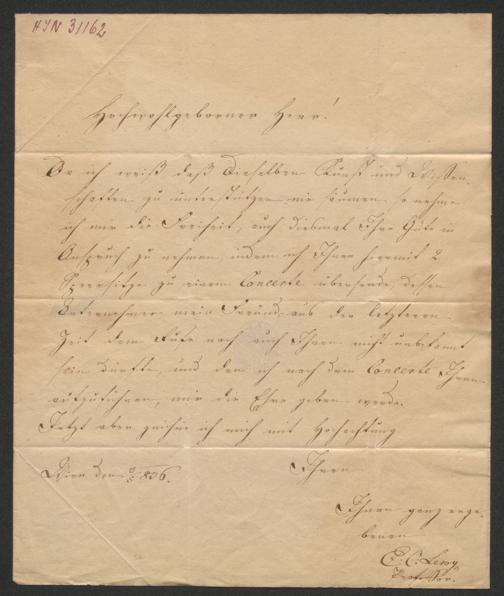 HIN 31162
Hochwohlgeborner Herr!
Da ich weiß daß Dieselben Kunst und Wissen-
schaften zu unterstützen nie säumen, so nehme
ich mir die Freiheit, auch diesmal Ihre Güte in
Anspruch zu nehmen, indem ich Ihnen hiermit 2
Sperrsitze zu einem Concerte übersende, dessen
Unternehmer mein Freund aus der letzteren
Zeit dem Rufe nach auch Ihnen nicht unbekannt
sein dürfte, und den ich nach dem Concerte Ihnen
aufzuführen, mir die Ehre geben werde.
Jetzt aber zeichne ich mich mit Hochachtung
Wien den 836.
Ihnen
Ihnen ganz erge-
benen
E. C. Lewy
Professor.